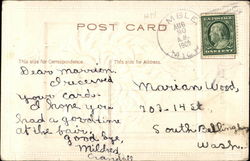 POST CARD
AUG
30
1909
This side for Correspondence.
This side for Address.
Dear Marion,
I received
your card.
I hope you
had a good time
at the fair.
Good bye,
Mildred
Marian Wood,
703-14 St
South Bellingham
Wash.